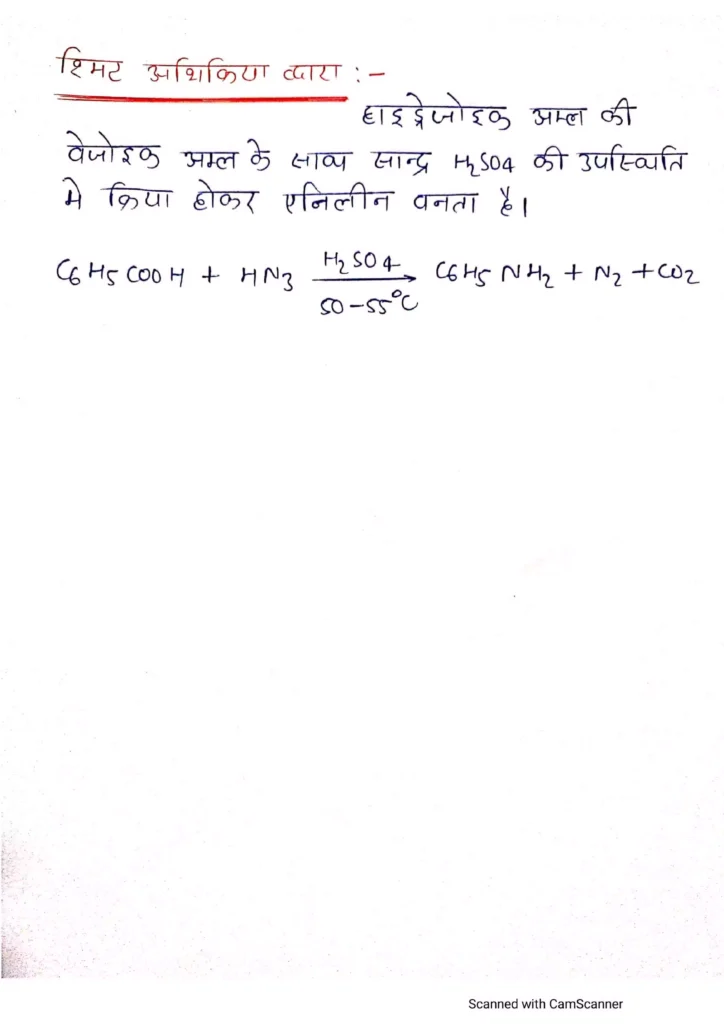 श्मिट अभिक्रिया द्वारा :-
हाइड्रेजोइक अम्ल की
वेजोइक अम्ल के साथ सान्द्र H₂SO4 की उपस्थिति
मे क्रिया होकर एनिलीन वनता है।
C6H5COOH + HN3 H₂SO4 → C6H5NH₂ + N₂ + CO2
50-55°C
Scanned with CamScanner